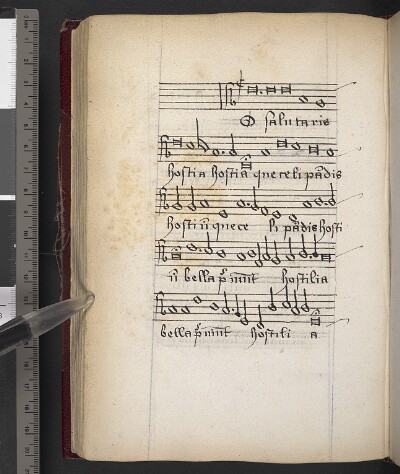 O salutaris
hostia hostia que celi pādis
hosti ū quece li pādis hosti
ū bella p̄ mūt hostilia
bella p̄ mūt hostili a